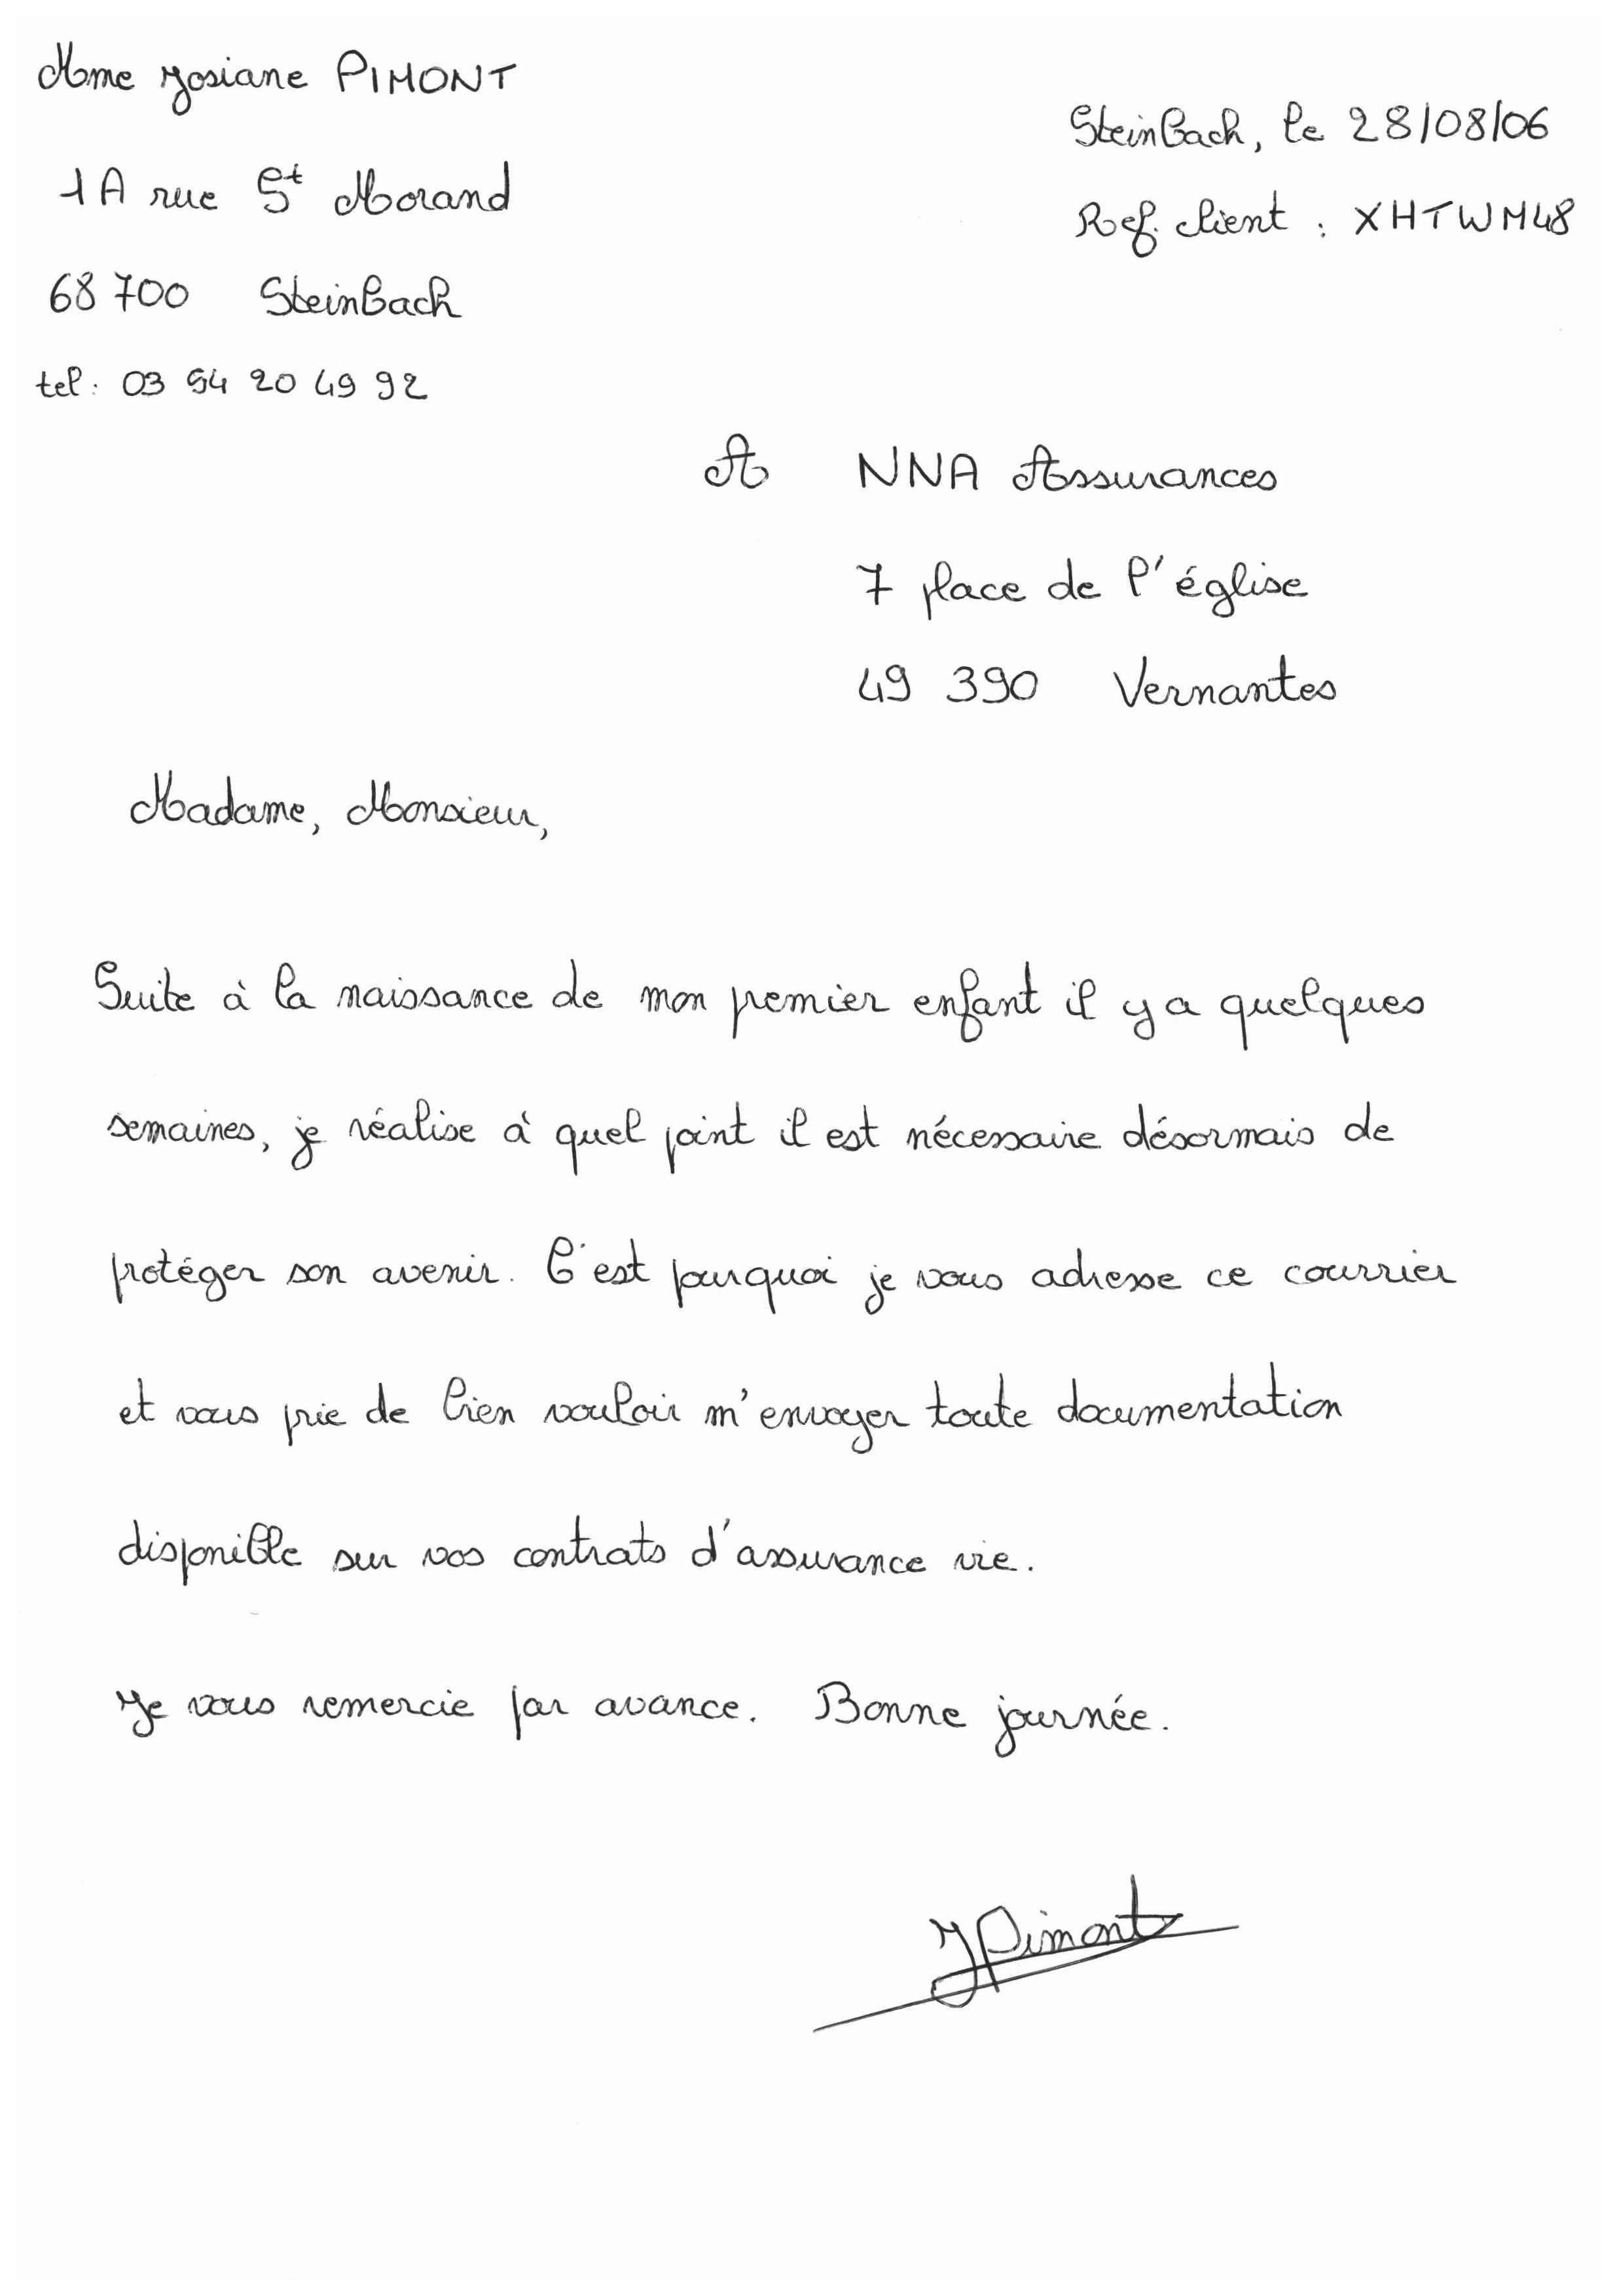 Mme Josiane PIMONT
Steinbach, le 28/08/06
1A rue St Morand
Ref. client : XHTWM48
68 700 Steinbach
tel : 03 54 20 49 92
A NNA Assurances
7 place de l'église
49 390 Vernantes
Madame, Monsieur,
Suite à la naissance de mon premier enfant il y a quelques
semaines, je réalise à quel point il est nécessaire désormais de
protéger son avenir. C'est pourquoi je vous adresse ce courrier
et vous prie de bien vouloir m'envoyer toute documentation
disponible sur vos contrats d'assurance vie.
Je vous remercie par avance. Bonne journée.
JPimont